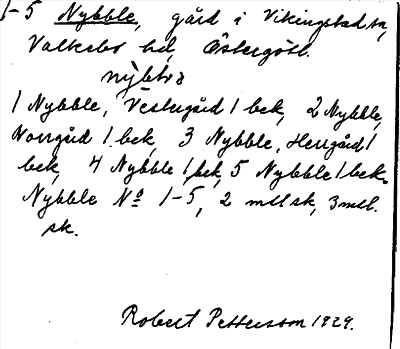 1-5 Nybble, gård i Vikingstad sn,
Valkebo hd, Östergötl.
nỳbbra
1 Nybble, Västergård 1 bek, 2 Nybble,
Norrgård 1 bek, 3 Nybble, Herrgård 1
bek, 4 Nybble 1 bek, 5 Nybble 1 bek.
Nybble Nº 1-5, 2 mtl sk, 3 mtl.
sk.
Robert Pettersson 1929.